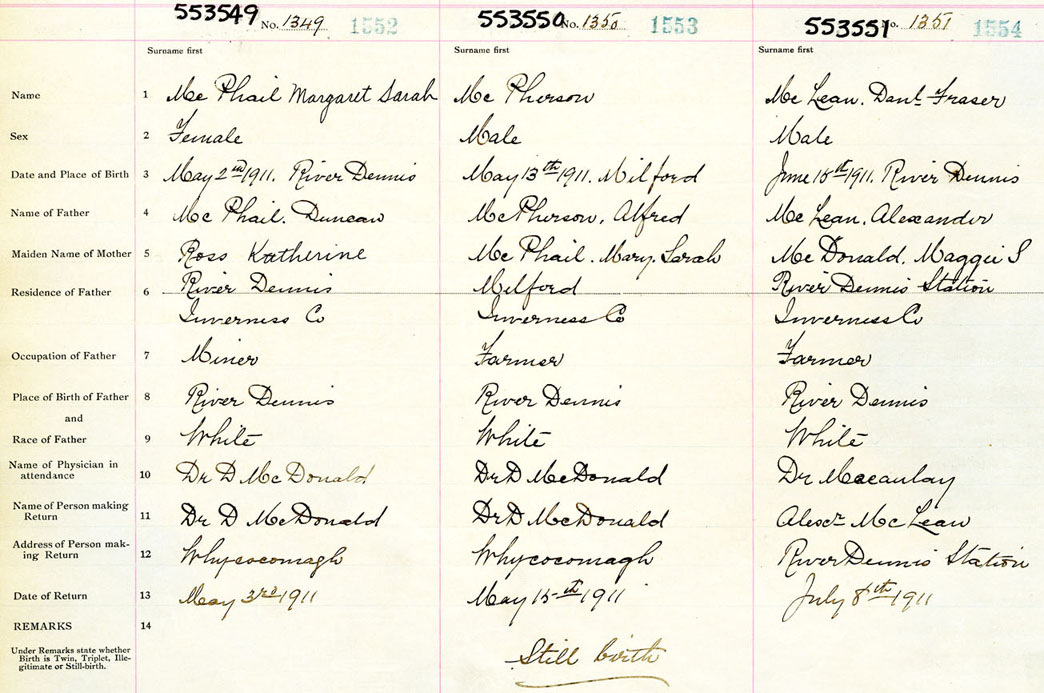 553549 No. 1349 1552 553550 No. 1350 1553 553551 No. 1351 1554
Surname first Surname first Surname first
Name 1 Mc Phail Margaret Sarah Mc Pherson Mc Lean. Danl. Fraser
Sex 2 Female Male Male
Date and Place of Birth 3 May 2nd 1911. River Dennis May 13th 1911. Milford June 15th 1911. River Dennis
Name of Father 4 Mc Phail. Duncan McPherson, Alfred Mc Lean, Alexander
Maiden Name of Mother 5 Ross Katherine Mc Phail. Mary. Sarah Mc Donald. Maggie S
Residence of Father 6 River Dennis Milford River Dennis Station
Inverness Co Inverness Co Inverness Co
Occupation of Father 7 Miner Farmer Farmer
Place of Birth of Father 8 River Dennis River Dennis River Dennis
and
Race of Father 9 White White White
Name of Physician in
attendance 10 Dr D McDonald Dr D McDonald Dr Macaulay
Name of Person making
Return 11 Dr D McDonald Dr D McDonald Alexr Mc Lean
Address of Person mak-
ing Return 12 Whycocomagh Whycocomagh River Dennis Station
Date of Return 13 May 3rd 1911 May 15th 1911 July 8th 1911
REMARKS 14
Under Remarks state whether
Birth is Twin, Triplet, Ille-
gitimate or Still-birth.
Still birth